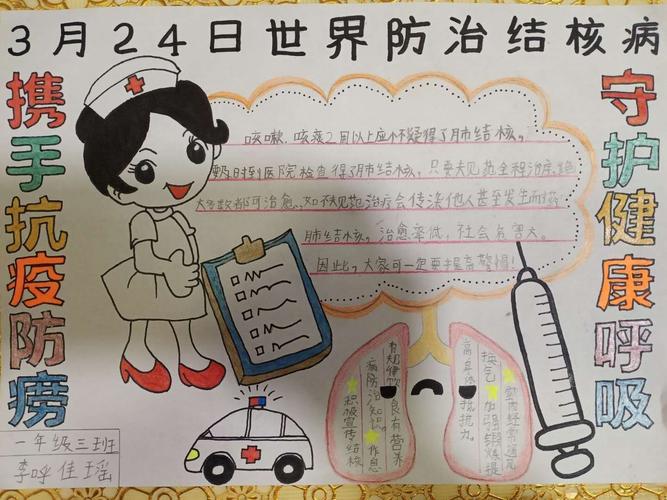 3月24日世界防治结核病
携手抗疫防痨
守护健康呼吸
咳嗽、咳痰2周以上应怀疑得了肺结核,
要及时到医院检查得了肺结核,只要规范全程治疗,绝
大多数都可治愈、如不规范治疗会传染他人甚至发生耐药
肺结核,治愈率低,社会危害大。
因此,大家可一定要提高警惕!
积极宣传结核
病防治知识。作息
有规律饮食
良有营养
高身体抵抗力。
换气 加强锻炼提
室内经常通
一年级三班
李呼佳瑶